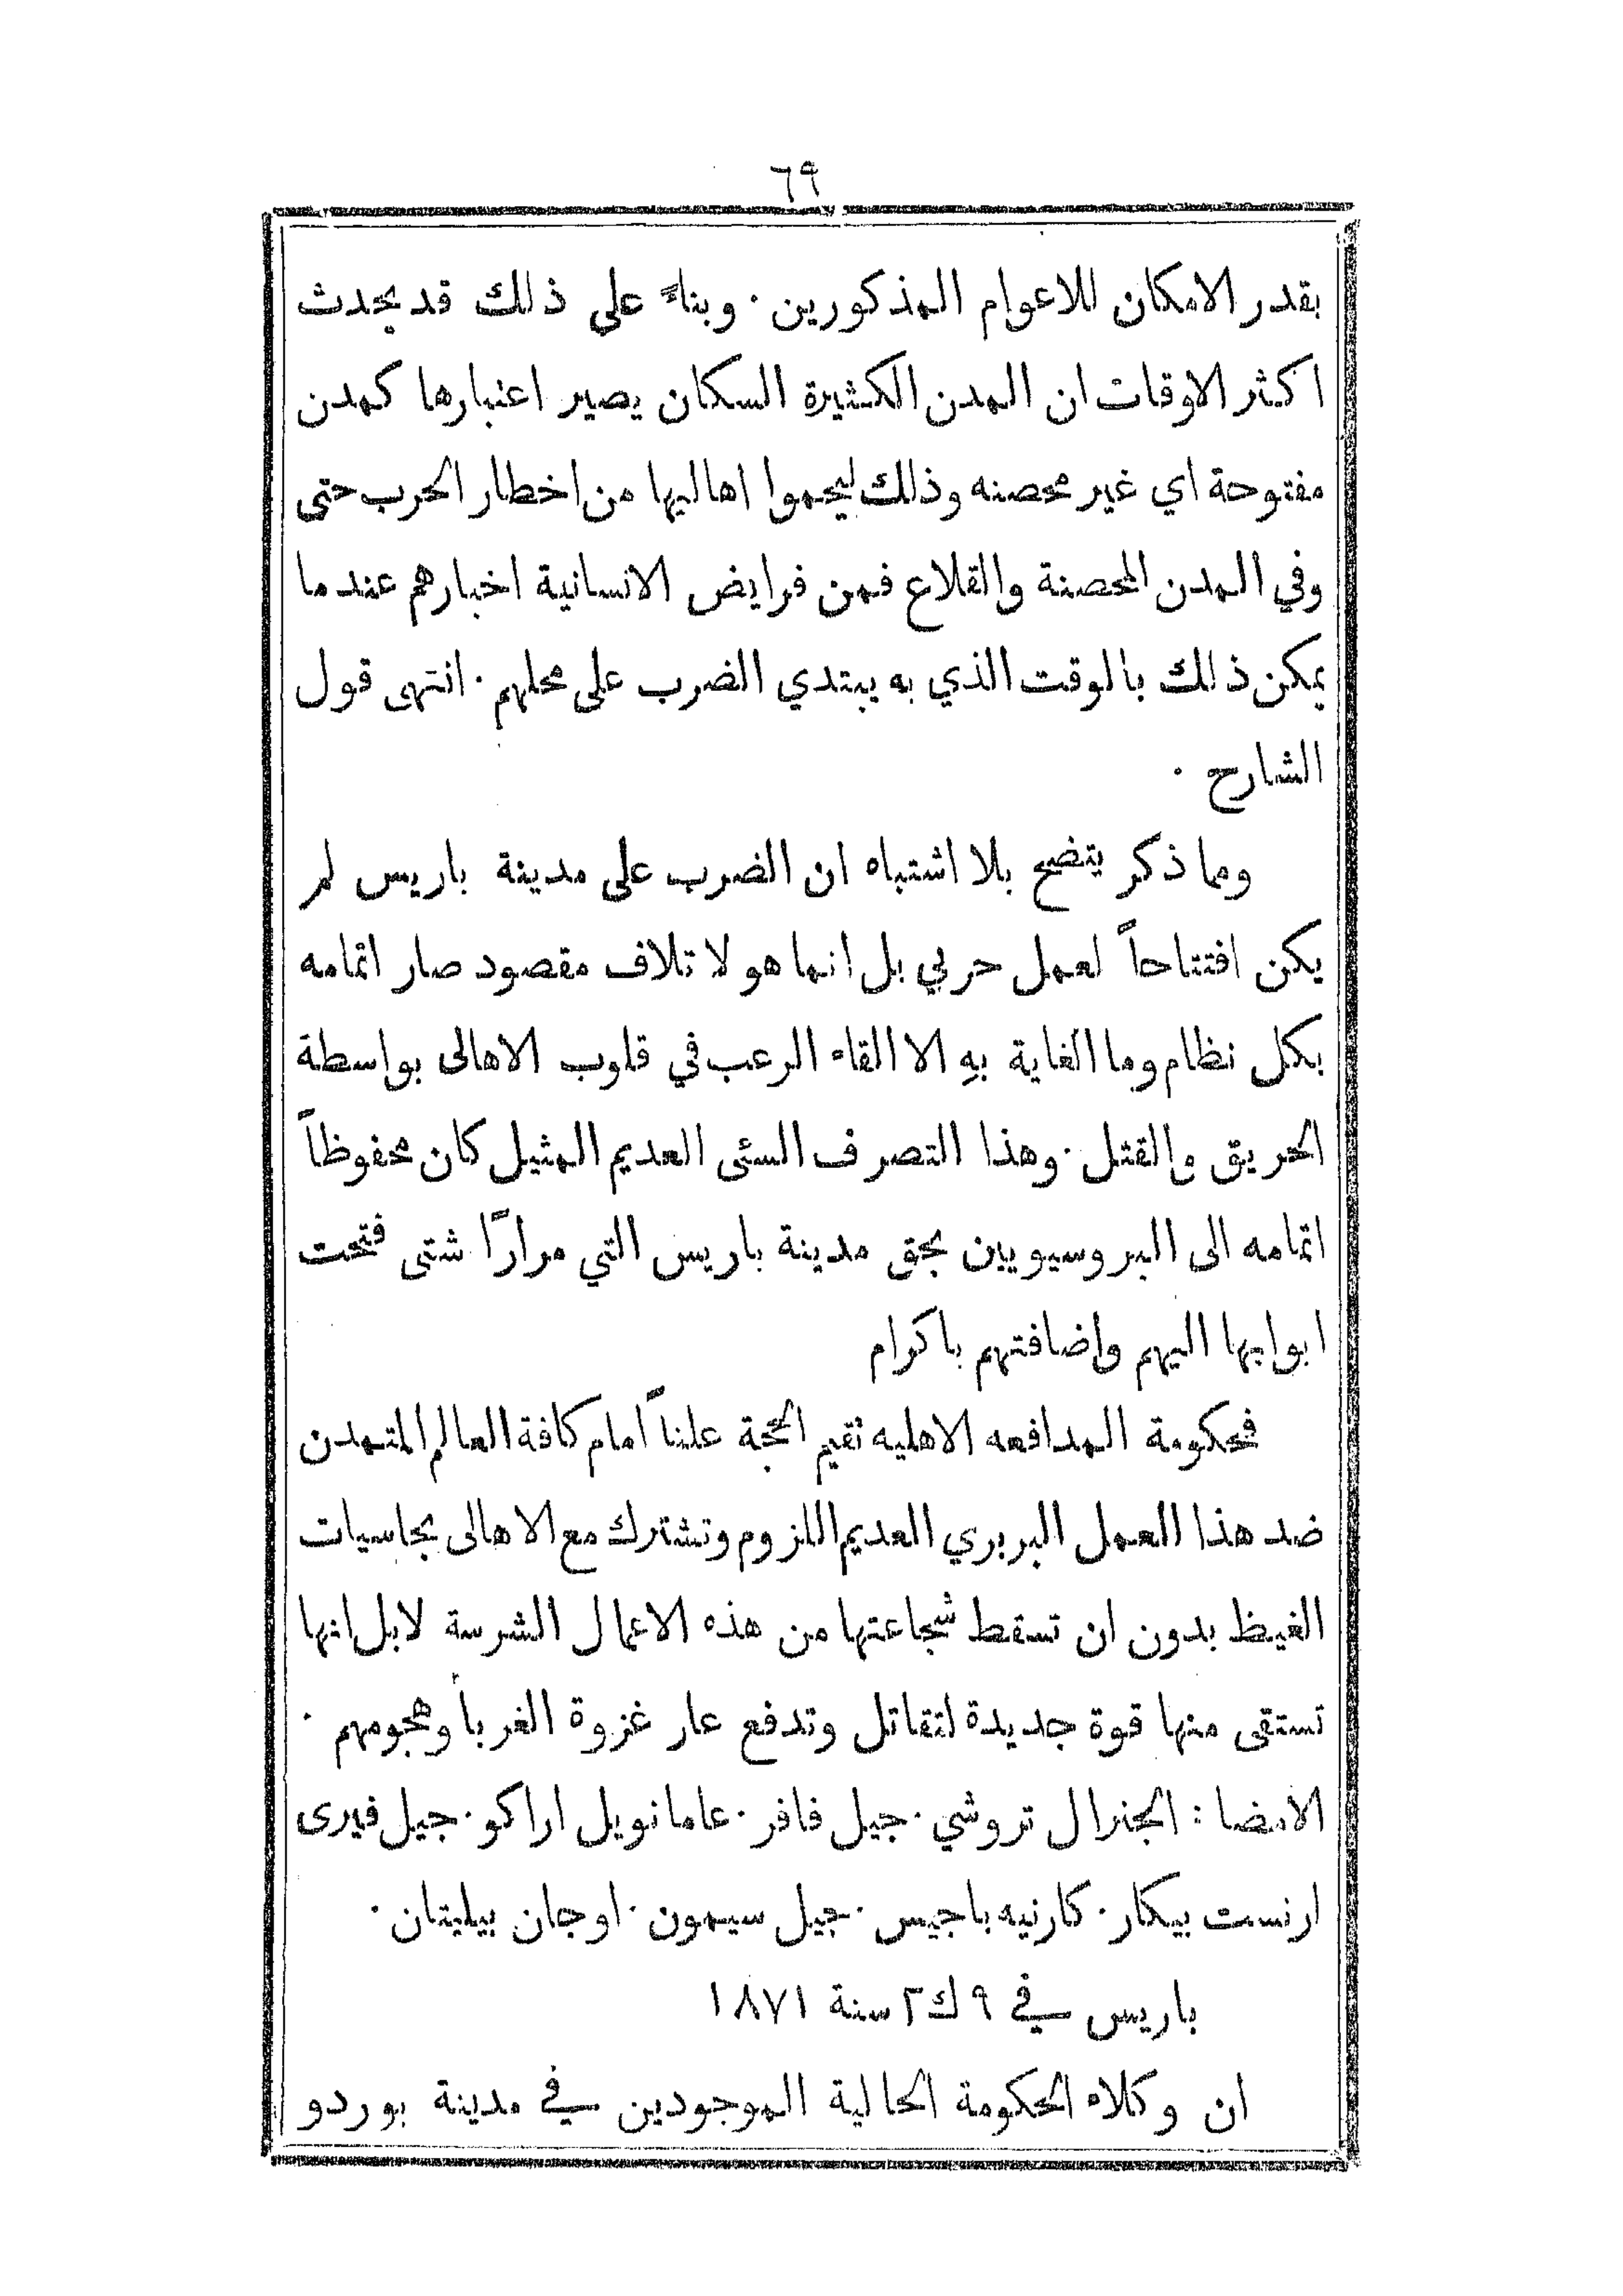 ٦٩
بقدر الامكان للاعوام المذكورين ٠ وبناءً على ذلك قد يحدث
اكثر الاوقات ان المدن الكثيرة السكان يصير اعتبارها كمدن
مفتوحة اي غير محصنه وذلك ليحموا اهاليها من اخطار الحرب حتى
وفي المدن المحصنة والقلاع فمن فرايض الانسانية اخبارهم عندما
يمكن ذلك بالوقت الذي به يبتدي الضرب على محلهم ٠ انتهى قول
الشارح ٠
ومما ذكر يتضح بلا اشتباه ان الضرب على مدينة باريس لم
يكن افتتاحاً لعمل حربي بل انما هو لا تلاف مقصود صار اتمامه
بكل نظام وما الغاية بهِ الا القاء الرعب في قلوب الاهالى بواسطة
الحريق والقتل ٠ وهذا التصرف السئى العديم المثيل كان محفوظاً
اتمامه الى البروسيويين بحق مدينة باريس التي مرارًا شتى فتحت
ابوابها اليهم واضافتهم باكرام
فحكومة المدافعه الاهليه تقيم الحجة علناً امام كافة العالم المتمدن
ضد هذا العمل البربري العديم اللزوم وتشترك مع الاهالى بحاسيات
الغيظ بدون ان تسقط شجاعتها من هذه الاعمال الشرسة لابل انها
تستقى منها قوة جديدة لتقاتل وتدفع عار غزوة الغربأ وهجومهم ٠
الامضا : الجنرال تروشي ٠ جيل فافر ٠ عامانويل اراكو ٠ جيل فيرى
ارنست بيكار ٠ كارنيه باجيس ٠ جيل سيمون ٠ اوجان بيليتان ٠
باريس في ٩ ك٢ سنة ١٨٧١
ان وكلاء الحكومة الحالية الموجودين في مدينة بوردو